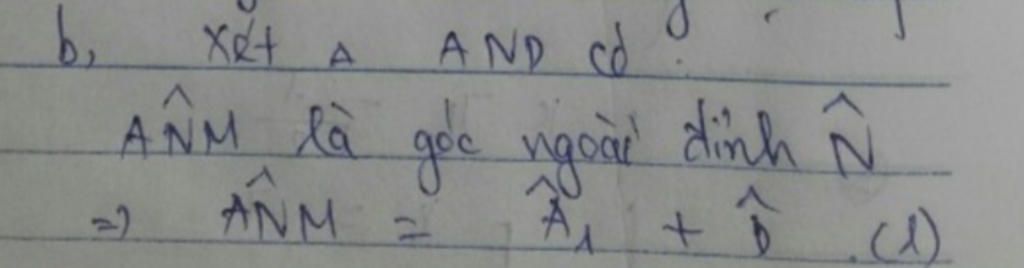 b, Xét Δ AND có :
AN̂M là góc ngoài đỉnh N̂
=> AN̂M = Â₁ + D̂ . (1)